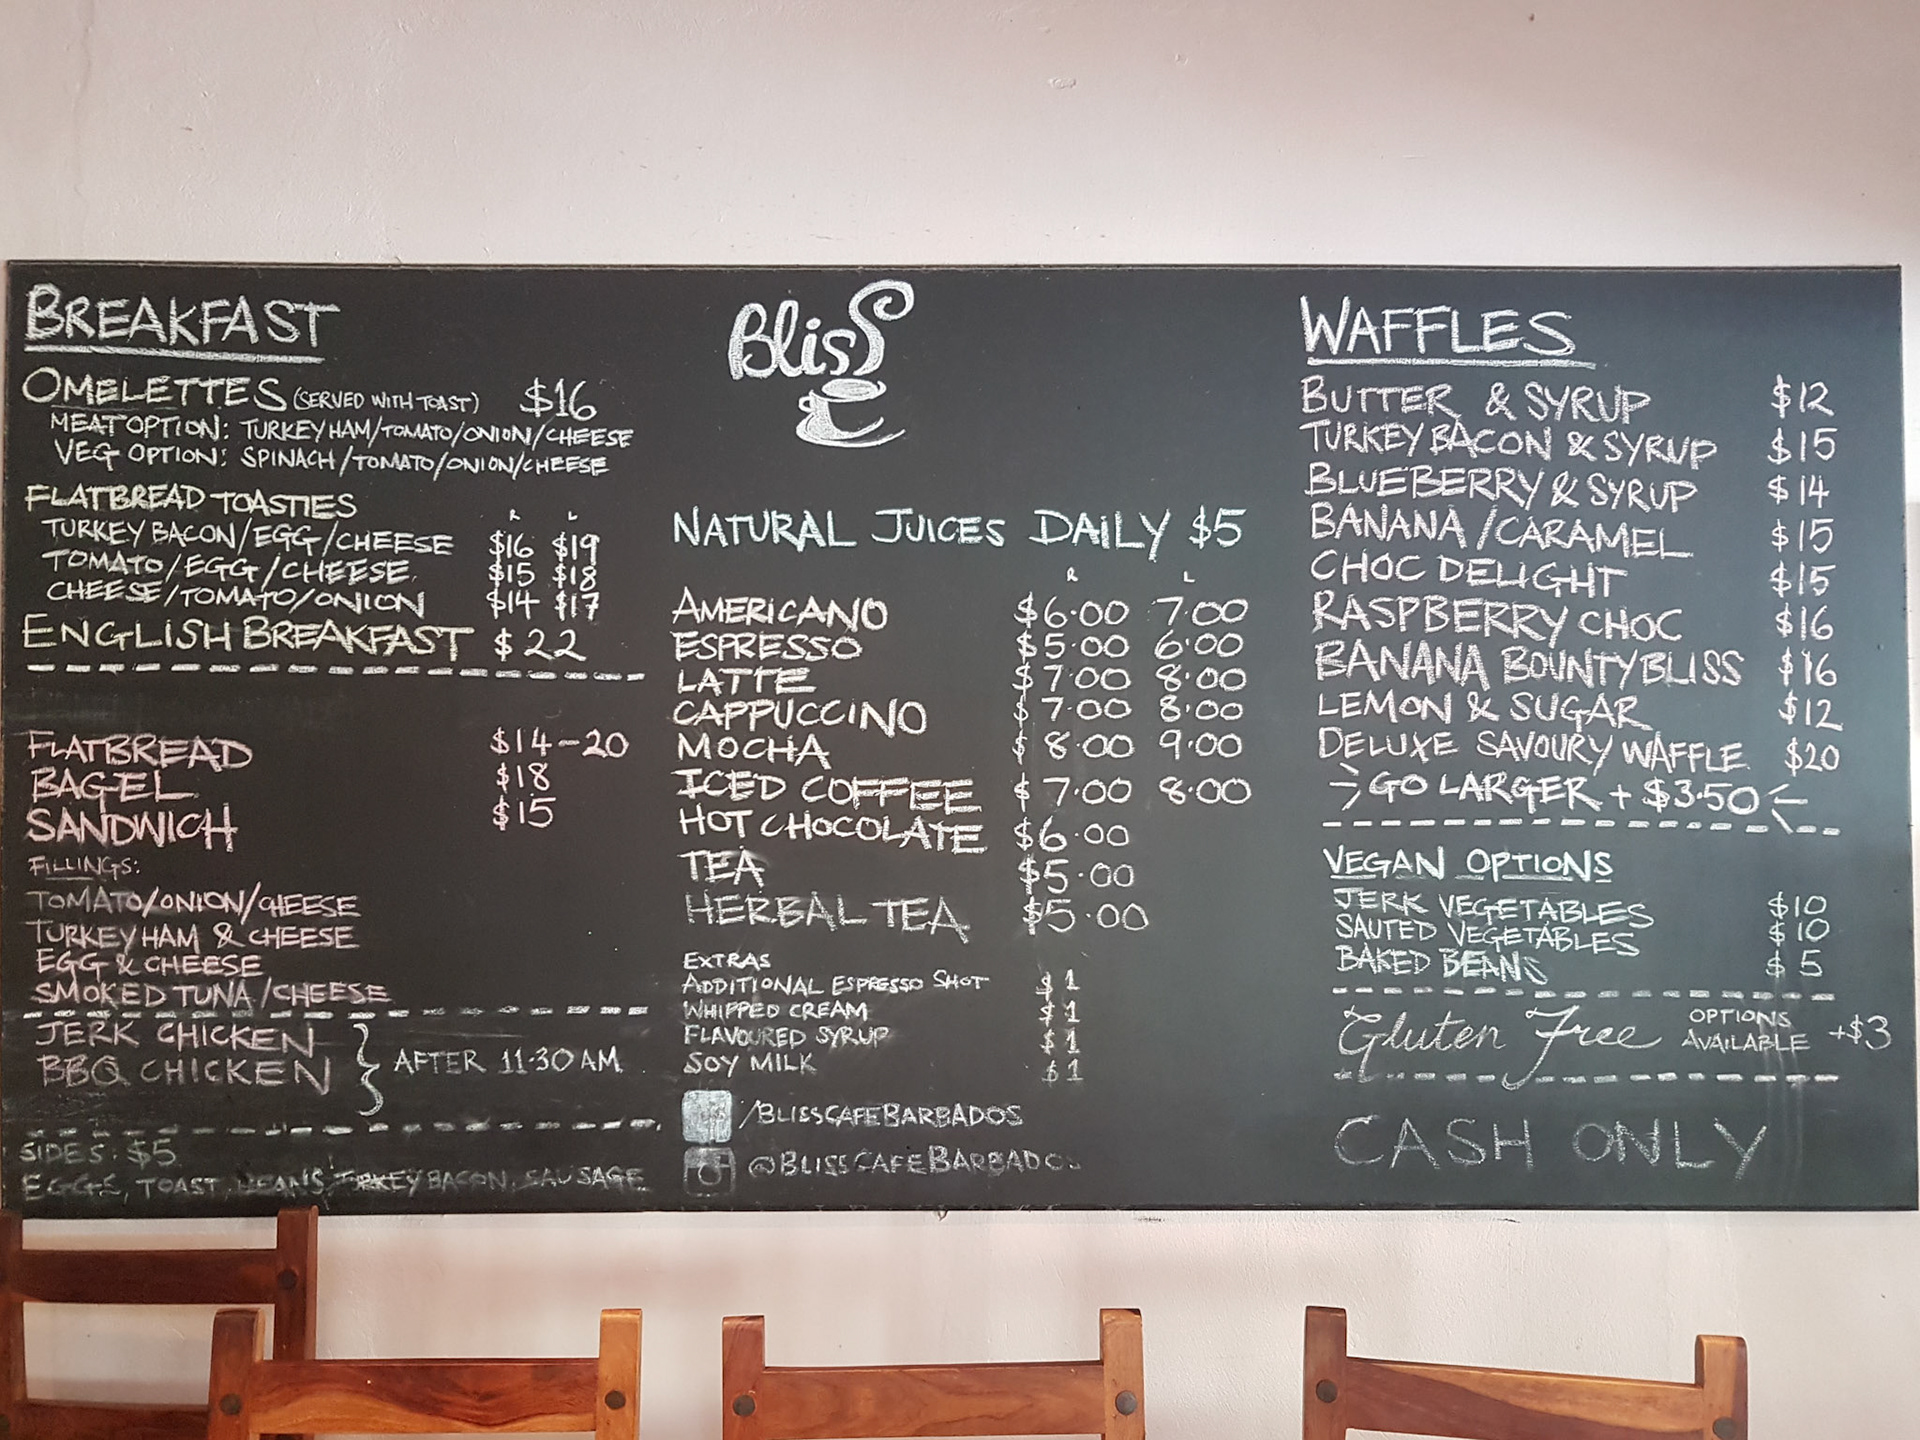 BREAKFAST
OMELETTES (SERVED WITH TOAST) $16
MEAT OPTION: TURKEY HAM/TOMATO/ONION/CHEESE
VEG OPTION: SPINACH/TOMATO/ONION/CHEESE
FLATBREAD TOASTIES R L
TURKEY BACON/EGG/CHEESE $16 $19
TOMATO/EGG/CHEESE $15 $18
CHEESE/TOMATO/ONION $14 $17
ENGLISH BREAKFAST $22
FLATBREAD $14-20
BAGEL $18
SANDWICH $15
FILLINGS:
TOMATO/ONION/CHEESE
TURKEY HAM & CHEESE
EGG & CHEESE
SMOKED TUNA/CHEESE
JERK CHICKEN
BBQ CHICKEN
AFTER 11·30 AM
SIDES· $5
EGGS, TOAST, BEANS, TURKEY BACON, SAUSAGE
Bliss
NATURAL JUICES DAILY $5
R L
AMERICANO $6·00 7·00
ESPRESSO $5·00 6·00
LATTE $7·00 8·00
CAPPUCCINO $7·00 8·00
MOCHA $8·00 9·00
ICED COFFEE $7·00 8·00
HOT CHOCOLATE $6·00
TEA $5·00
HERBAL TEA $5·00
EXTRAS
ADDITIONAL ESPRESSO SHOT $1
WHIPPED CREAM $1
FLAVOURED SYRUP $1
SOY MILK $1
/BLISSCAFEBARBADOS
@BLISSCAFEBARBADOS
WAFFLES
BUTTER & SYRUP $12
TURKEY BACON & SYRUP $15
BLUEBERRY & SYRUP $14
BANANA/CARAMEL $15
CHOC DELIGHT $15
RASPBERRY CHOC $16
BANANA BOUNTY BLISS $16
LEMON & SUGAR $12
DELUXE SAVOURY WAFFLE $20
GO LARGER + $3·50
VEGAN OPTIONS
JERK VEGETABLES $10
SAUTED VEGETABLES $10
BAKED BEANS $5
Gluten Free OPTIONS AVAILABLE +$3
CASH ONLY